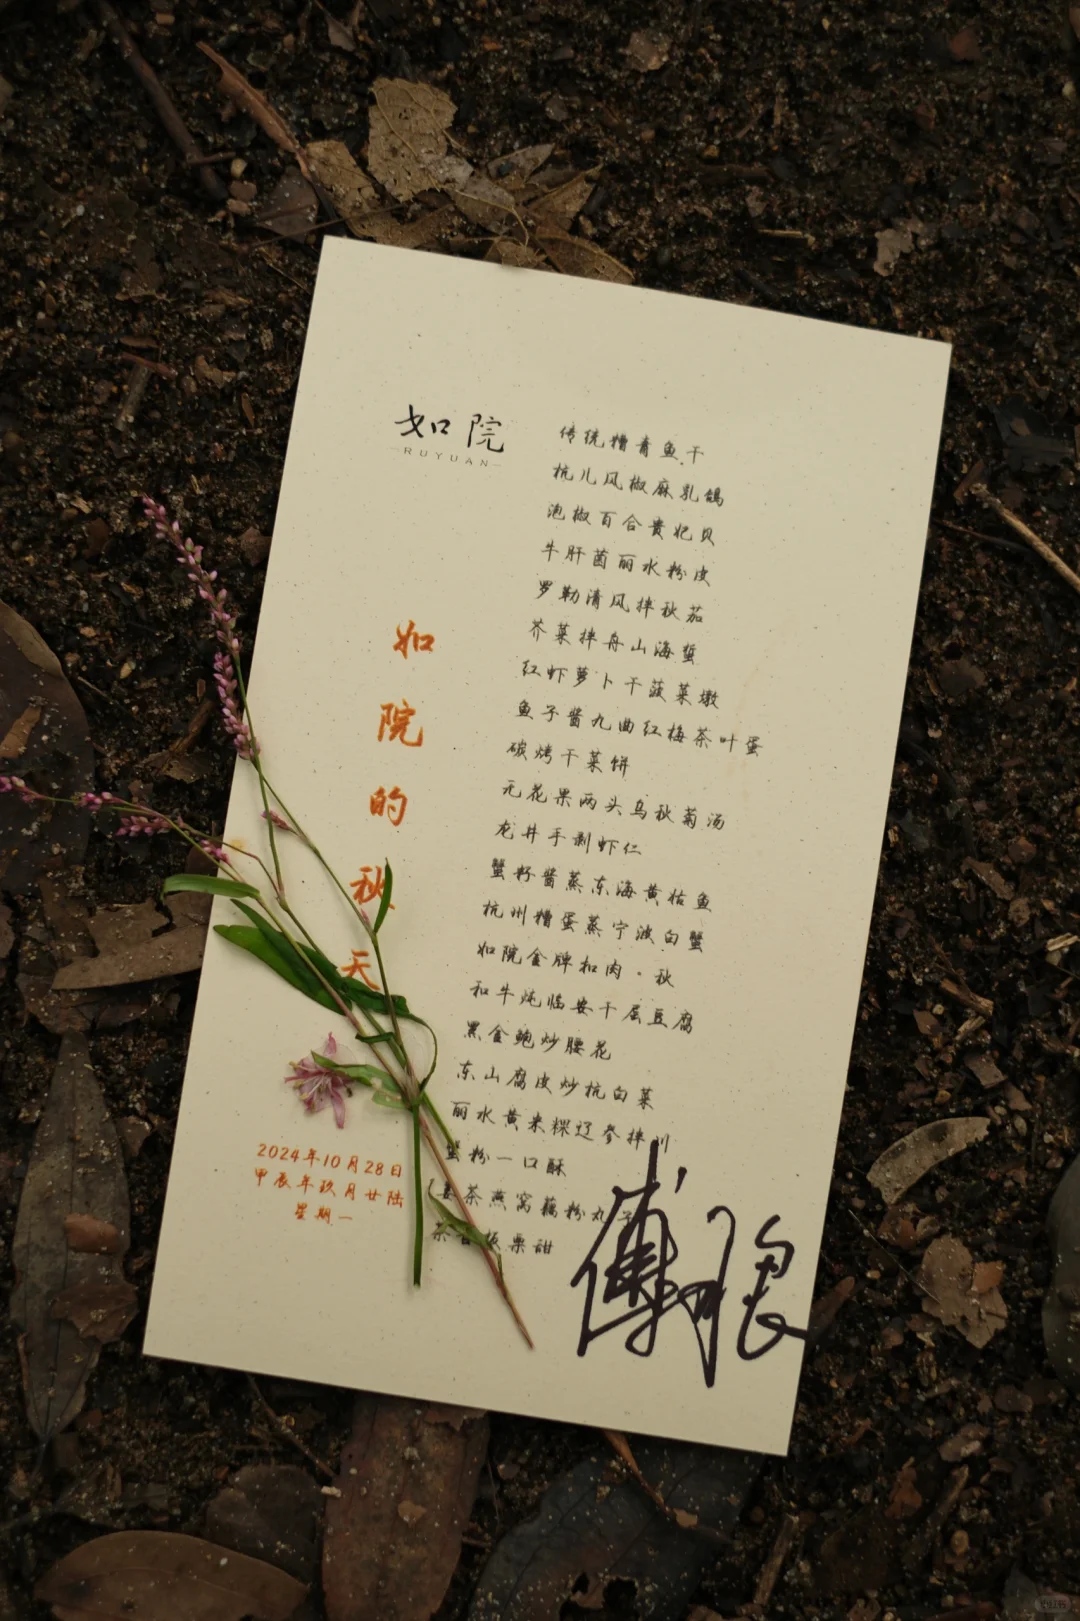 如院
RUYUAN
如院的秋天
2024年10月28日
甲辰年玖月廿陆
星期一
传统糟青鱼干
杭儿风椒麻乳鸽
泡椒百合贵妃贝
牛肝菌丽水粉皮
罗勒清风拌秋茄
芥菜拌舟山海蜇
红虾萝卜干菠菜墩
鱼子酱九曲红梅茶叶蛋
碳烤干菜饼
无花果两头乌秋菊汤
龙井手剥虾仁
蟹籽酱蒸东海黄姑鱼
杭州糟蛋蒸宁波白蟹
如院金牌扣肉·秋
和牛炖临安千层豆腐
黑金鲍炒腰花
东山腐皮炒杭白菜
丽水黄米粿辽参拌川
蟹粉一口酥
姜茶燕窝藕粉丸子
茶香板栗甜